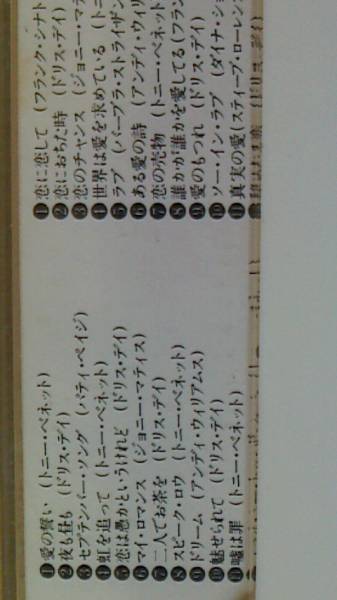 ❶愛の誓い (トニー・ベネット)
❷夜も昼も (ドリス・デイ)
❸セプテンバー・ソング (パティ・ペイジ)
❹虹を追って (トニー・ベネット)
❺恋は愚かというけれど (ドリス・デイ)
❻マイ・ロマンス (ジョニー・マティス)
❼二人でお茶を (ドリス・デイ)
❽スピーク・ロウ (トニー・ベネット)
❾ドリーム (アンディ・ウィリアムス)
❿魅せられて (ドリス・デイ)
⓫嘘は罪 (トニー・ベネット)
❶恋に恋して (フランク・シナト
❷恋におちた時 (ドリス・デイ)
❸恋のチャンス (ジョニー・マテ
❹世界は愛を求めている (トニ
❺ラブ (バーブラ・ストライザン
❻ある愛の詩 (アンディ・ウィリ
❼恋の売物 (トニー・ベネット
❽誰かが誰かを愛してる (フラン
❾愛のもつれ (ドリス・デイ)
❿ソー・イン・ラブ (ダイナ・ショ
⓫真実の愛 (スティーブ・ローレンス